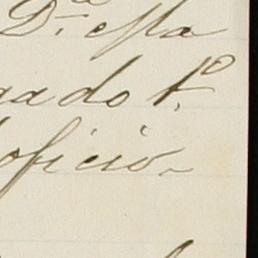 D.ª esta
gado t.º
oficio.